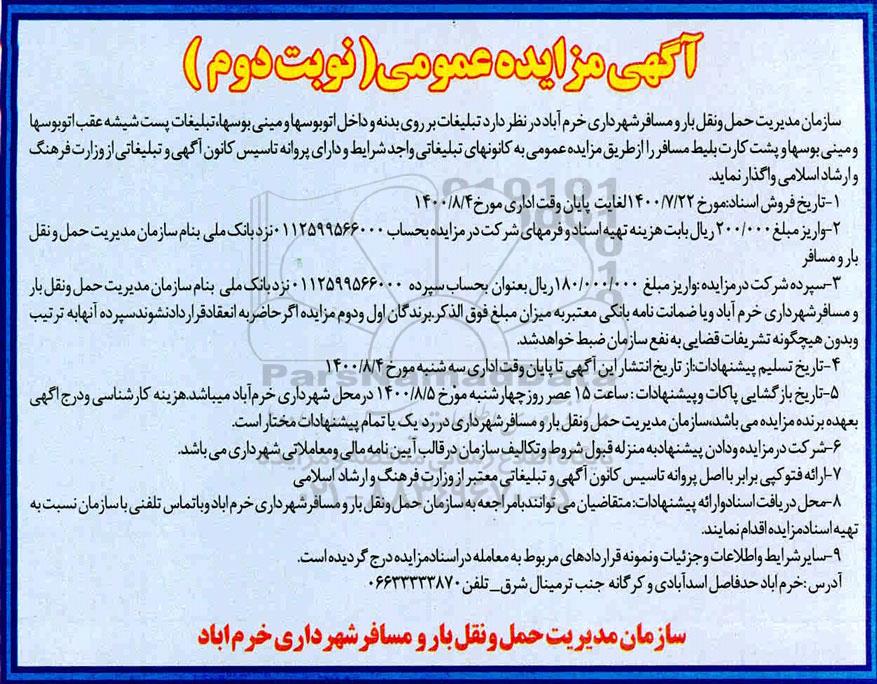 آگهی مزایده عمومی( نوبت دوم )
سازمان مدیریت حمل ونقل بار و مسافر شهرداری خرم آباد در نظر دارد تبلیغات بر روی بدنه و داخل اتوبوسها و مینی بوسها،تبلیغات پست شیشه عقب اتوبوسها
و مینی بوسها و پشت کارت بلیط مسافر را از طریق مزایده عمومی به کانونهای تبلیغاتی واجد شرایط و دارای پروانه تاسیس کانون آگهی و تبلیغاتی از وزارت فرهنگ
و ارشاد اسلامی واگذار نماید.
۱-تاریخ فروش اسناد:مورخ ۱۴۰۰/۷/۲۲ لغایت پایان وقت اداری مورخ ۱۴۰۰/۸/۴
۲-واریز مبلغ ۲۰۰/۰۰۰ ریال بابت هزینه تهیه اسناد و فرمهای شرکت در مزایده بحساب ۰۱۱۲۵۹۹۵۶۶۰۰۰ نزد بانک ملی بنام سازمان مدیریت حمل و نقل
بار و مسافر
۳-سپرده شرکت در مزایده :واریز مبلغ ۱۸۰/۰۰۰/۰۰۰ ریال بعنوان بحساب سپرده ۰۱۱۲۵۹۹۵۶۶۰۰۰ نزد بانک ملی بنام سازمان مدیریت حمل ونقل بار
و مسافر شهرداری خرم آباد ویا ضمانت نامه بانکی معتبر به میزان مبلغ فوق الذکر.برندگان اول ودوم مزایده اگر حاضر به انعقاد قرار داد نشوند سپرده آنها به ترتیب
وبدون هیچگونه تشریفات قضایی به نفع سازمان ضبط خواهد شد.
۴-تاریخ تسلیم پیشنهادات:از تاریخ انتشار این آگهی تا پایان وقت اداری سه شنبه مورخ ۱۴۰۰/۸/۴
۵-تاریخ باز گشایی پاکات و پیشنهادات : ساعت ۱۵ عصر روز چهارشنبه مورخ ۱۴۰۰/۸/۵ در محل شهرداری خرم آباد میباشد.هزینه کارشناسی ودرج آگهی
بعهده برنده مزایده می باشد،سازمان مدیریت حمل ونقل بار و مسافر شهرداری در رد یک یا تمام پیشنهادات مختار است.
۶-شرکت در مزایده ودادن پیشنهاد به منزله قبول شروط و تکالیف سازمان در قالب آیین نامه مالی ومعاملاتی شهرداری می باشد.
۷-ارائه فتوکپی برابر با اصل پروانه تاسیس کانون آگهی و تبلیغاتی معتبر از وزارت فرهنگ و ارشاد اسلامی
۸-محل دریافت اسناد وارائه پیشنهادات: متقاضیان می توانند بامراجعه به سازمان حمل ونقل بار و مسافر شهرداری خرم آباد وباتماس تلفنی با سازمان نسبت به
تهیه اسناد مزایده اقدام نمایند.
۹-سایر شرایط واطلاعات وجزئیات ونمونه قراردادهای مربوط به معامله در اسناد مزایده درج گردیده است.
آدرس :خرم اباد حدفاصل اسدآبادی و کرگانه جنب ترمینال شرق_تلفن ۰۶۶۳۳۳۳۳۸۷۰
سازمان مدیریت حمل ونقل بار و مسافر شهرداری خرم اباد
ParsNamadData